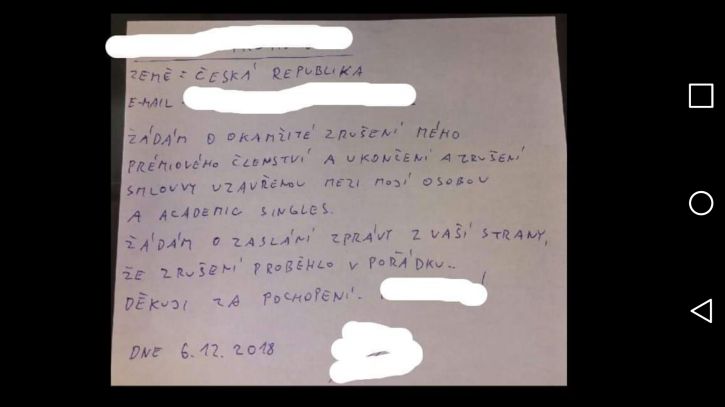 ZEMĚ: ČESKÁ REPUBLIKA
E-MAIL
ŽÁDÁM O OKAMŽITÉ ZRUŠENÍ MÉHO
PRÉMIOVÉHO ČLENSTVÍ A UKONČENÍ A ZRUŠENÍ
SMLOUVY UZAVŘENOU MEZI MOJÍ OSOBOU
A ACADEMIC SINGLES.
ŽÁDÁM O ZASLÁNÍ ZPRÁVY Z VAŠÍ STRANY,
ŽE ZRUŠENÍ PROBĚHLO V POŘÁDKU..
DĚKUJI ZA POCHOPENÍ.
DNE 6.12.2018